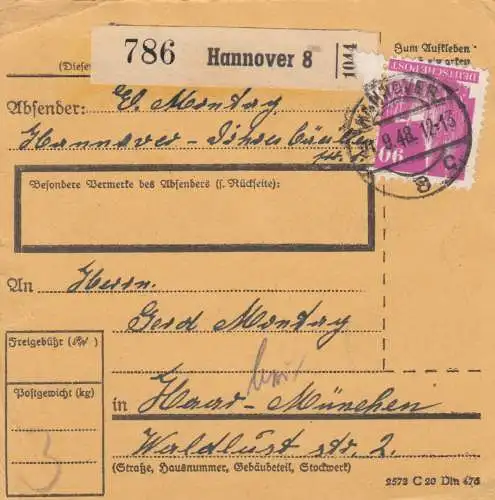 786 Hannover 8
1044
Zum Aufkleben
(Diese
DEUTSCHE POST
90
HANNOVER
11.9.48.12-13
8 c
Absender: El. Montag
Hannover-
Besondere Vermerke des Absenders (s. Rückseite):
An Herrn
Gerd Montag
Freigebühr (RM)
Postgewicht (kg)
3
in Haar-München
Waldlust str. 2.
(Straße, Hausnummer, Gebäubeteil, Stockwerk)
2573 C 20 Din 476